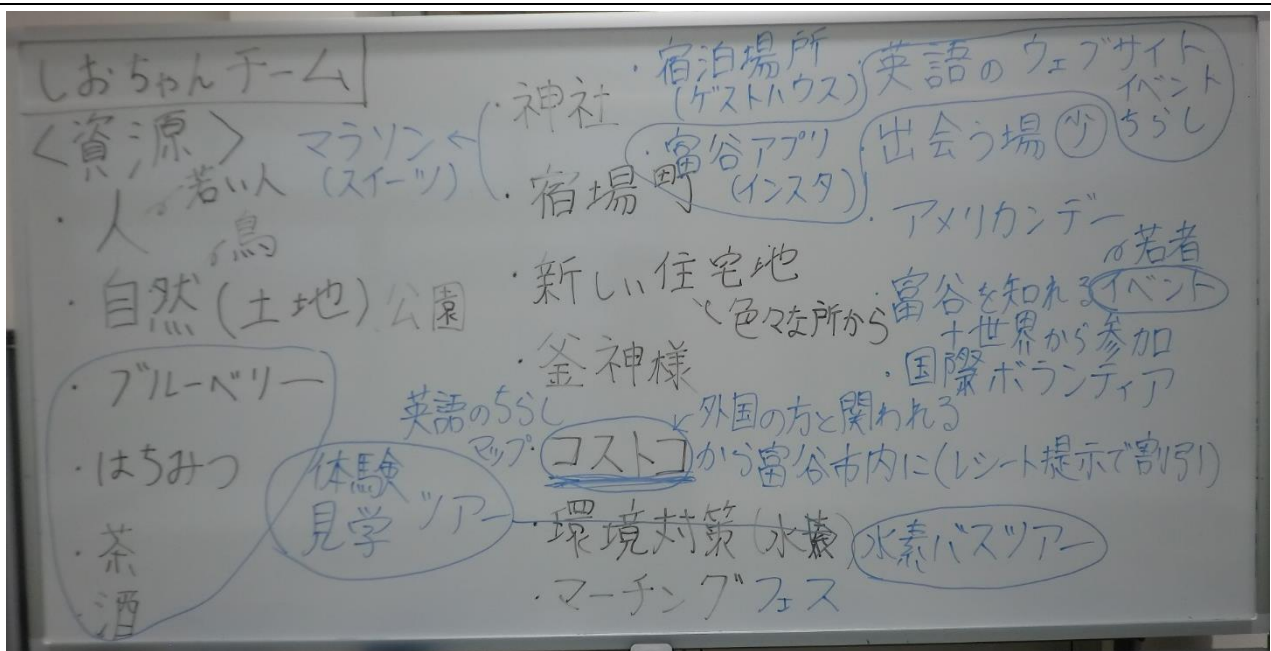 しおちゃんチーム
<資源>
・人
若い人
鳥
・自然(土地)公園
・ブルーベリー
・はちみつ
・茶
・酒
体験
見学ツアー
マラソン←
(スイーツ)
・神社
・宿場町
・新しい住宅地
色々な所から
・釜神様
英語のちらし
マップ・
コストコから富谷市内に(レシート提示で割引)
外国の方と関われる
・環境対策(水素)
水素バスツアー
・マーチングフェス
・宿泊場所
(ゲストハウス)
・富谷アプリ
(インスタ)
英語のウェブサイト
イベント
ちらし
・出会う場 少
・アメリカンデー
若者
・富谷を知れるイベント
+世界から参加
・国際ボランティア